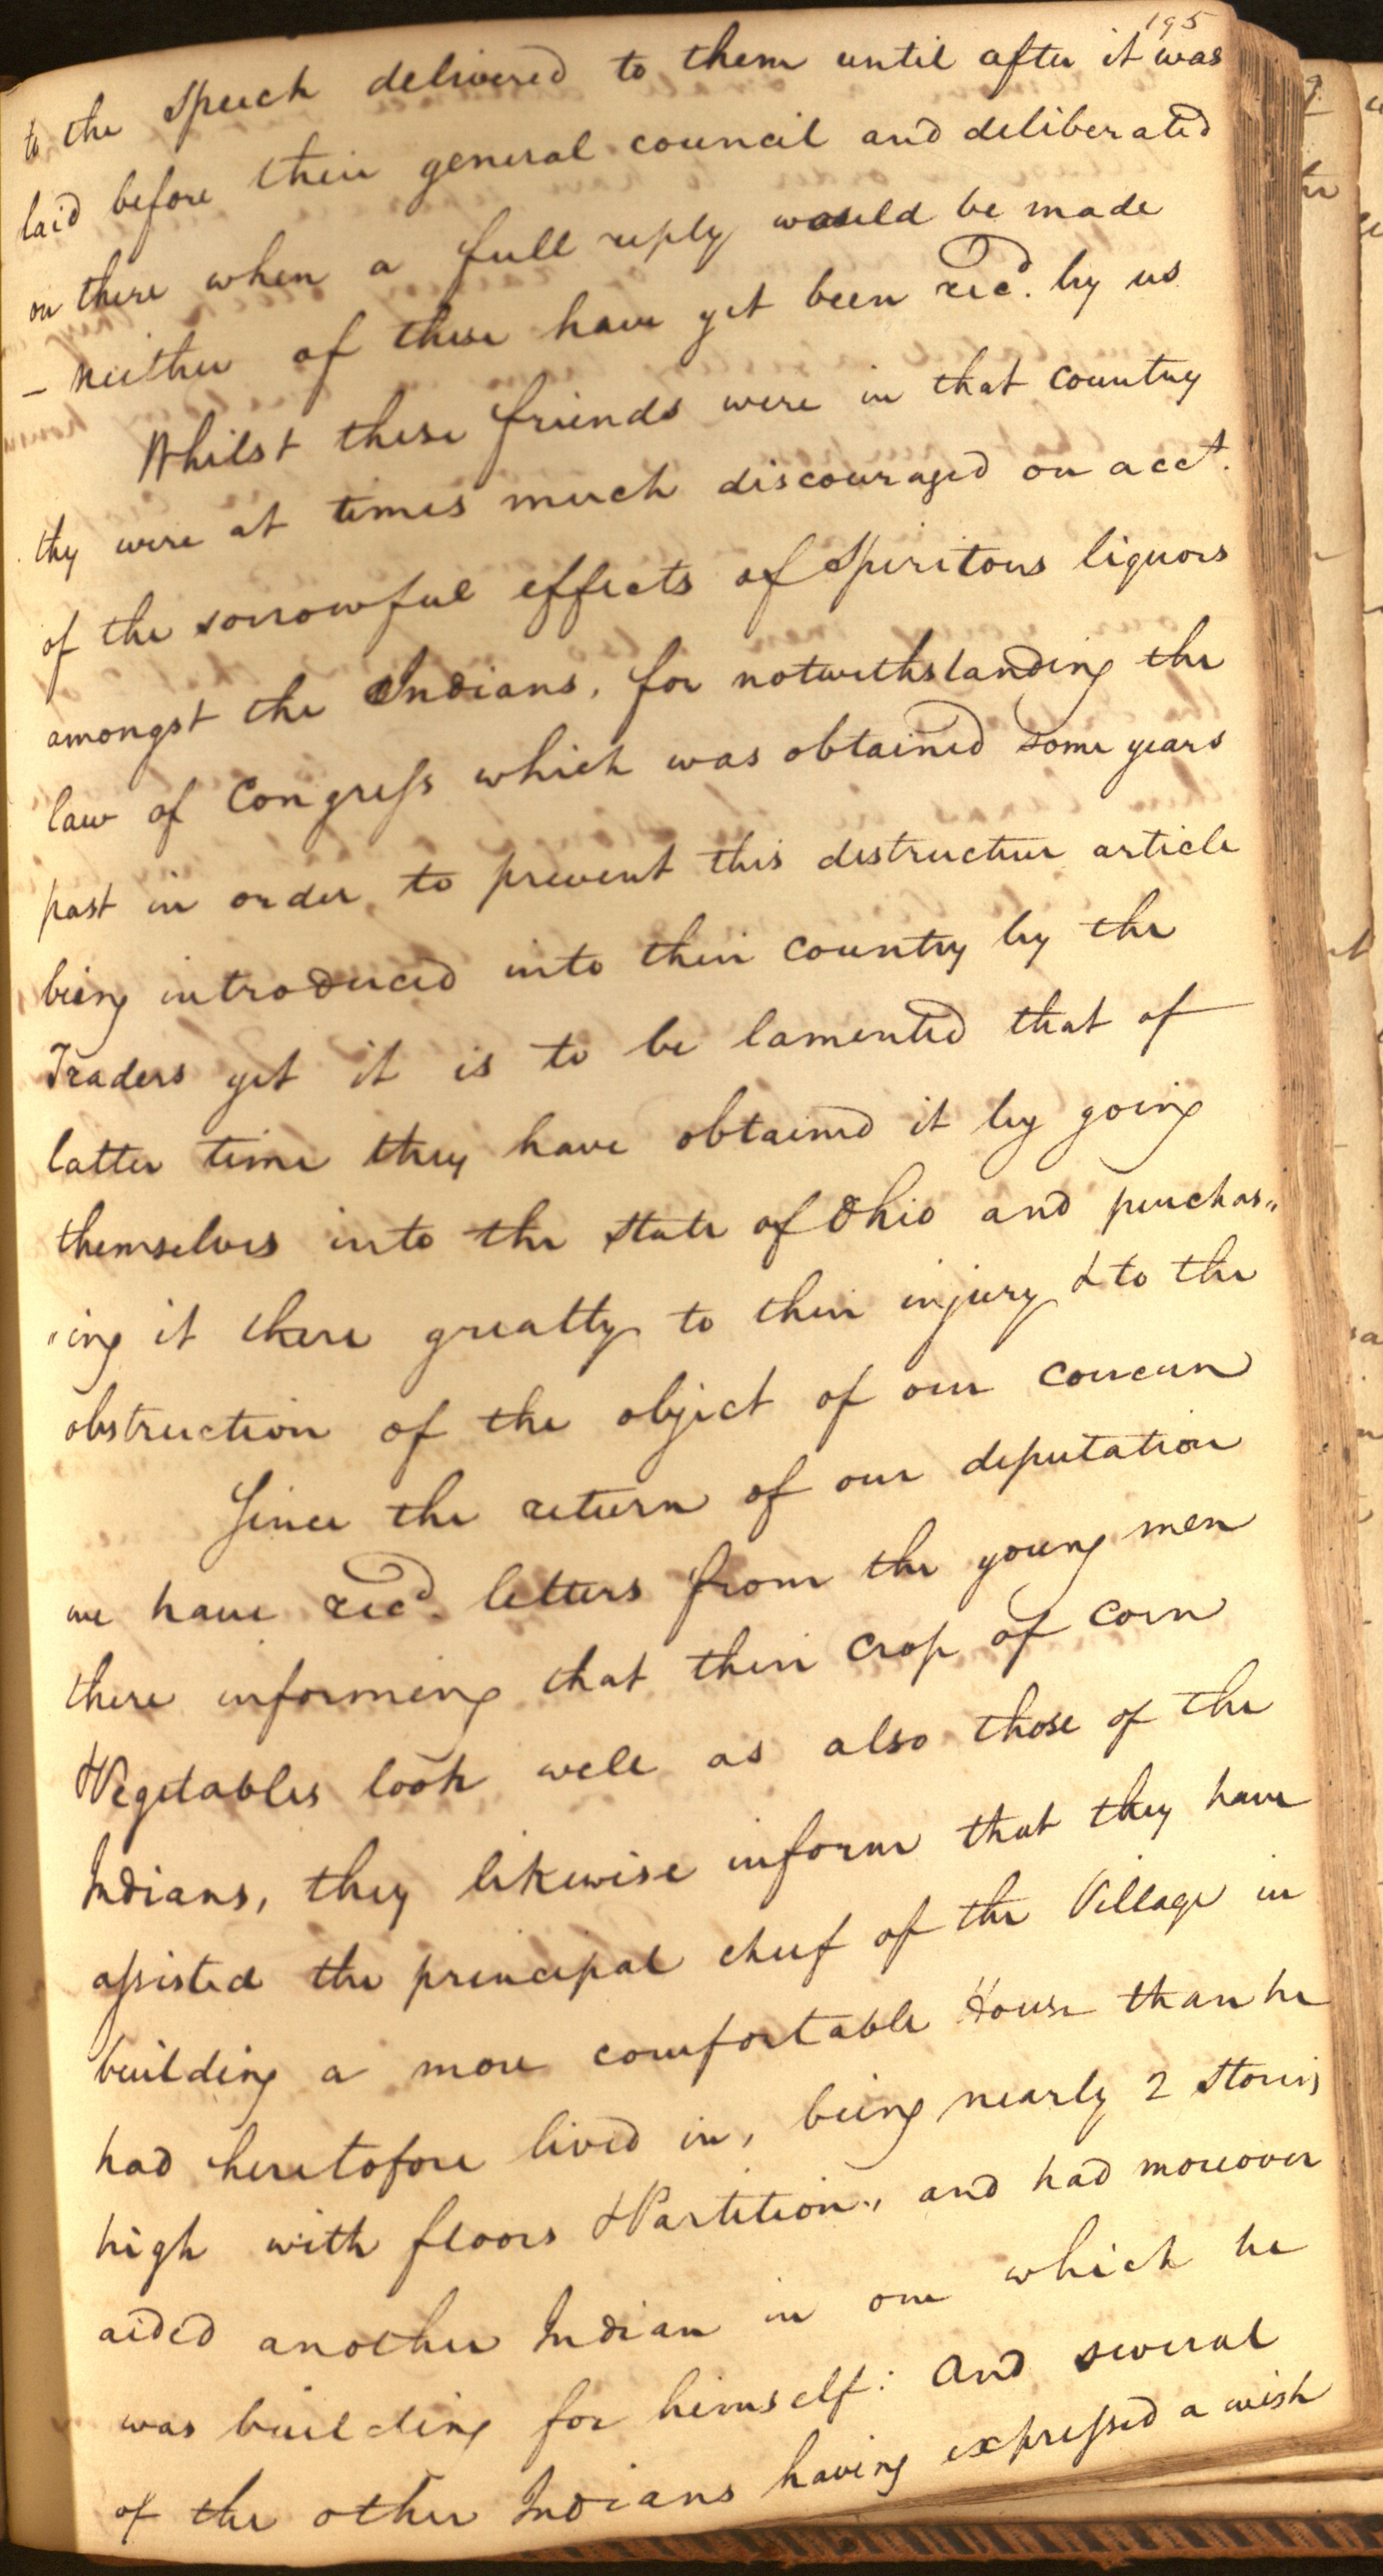 195
to the Speech delivered to them until after it was
laid before their general council and deliberated
on there when a full reply would be made
- neither of these have yet been recd. by us
Whilst these friends were in that country
thy were at times much discouraged on acct.
of the sorrowful effects of Spiritous liquors
amongst the Indians, for notwithstanding the
law of Congress which was obtained some years
past in order to prevent this destructive article
being introduced into their country by the
Traders yet it is to be lamented that of
latter time they have obtained it by going
themselves into the State of Ohio and purchas„
„ing it there greatly to their injury & to the
obstruction of the object of our concern
Since the return of our deputation
we have recd. letters from the young men
there informing that their crop of corn
& Vegetables look well as also those of the
Indians, they likewise inform that they have
assisted the principal cheif of the Village in
building a more comfortable House than he
had heretofore lived in, being nearly 2 Stories
high with floors & Partition., and had moreover
aided another Indian in one which he
was building for himself: and several
of the other Indians having expressed a wish